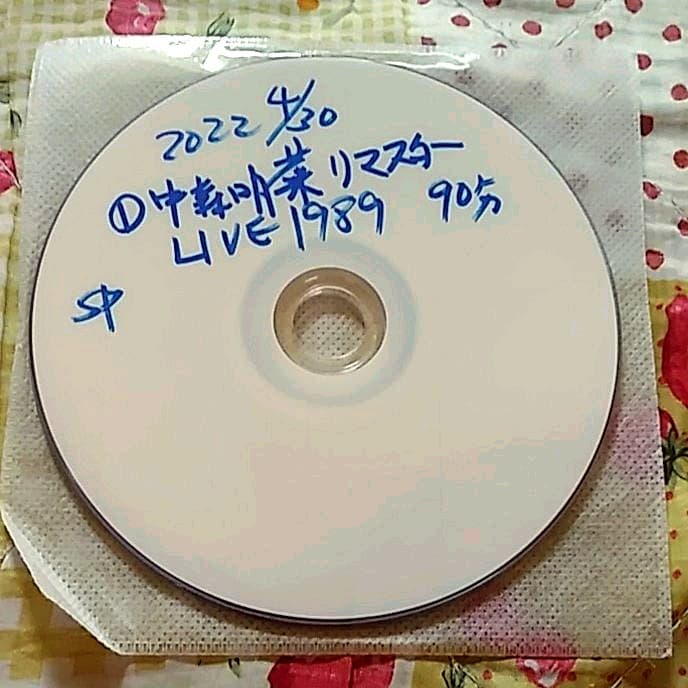 2022 4/30
①中森明菜 リマスター
LIVE 1989 90分
SP